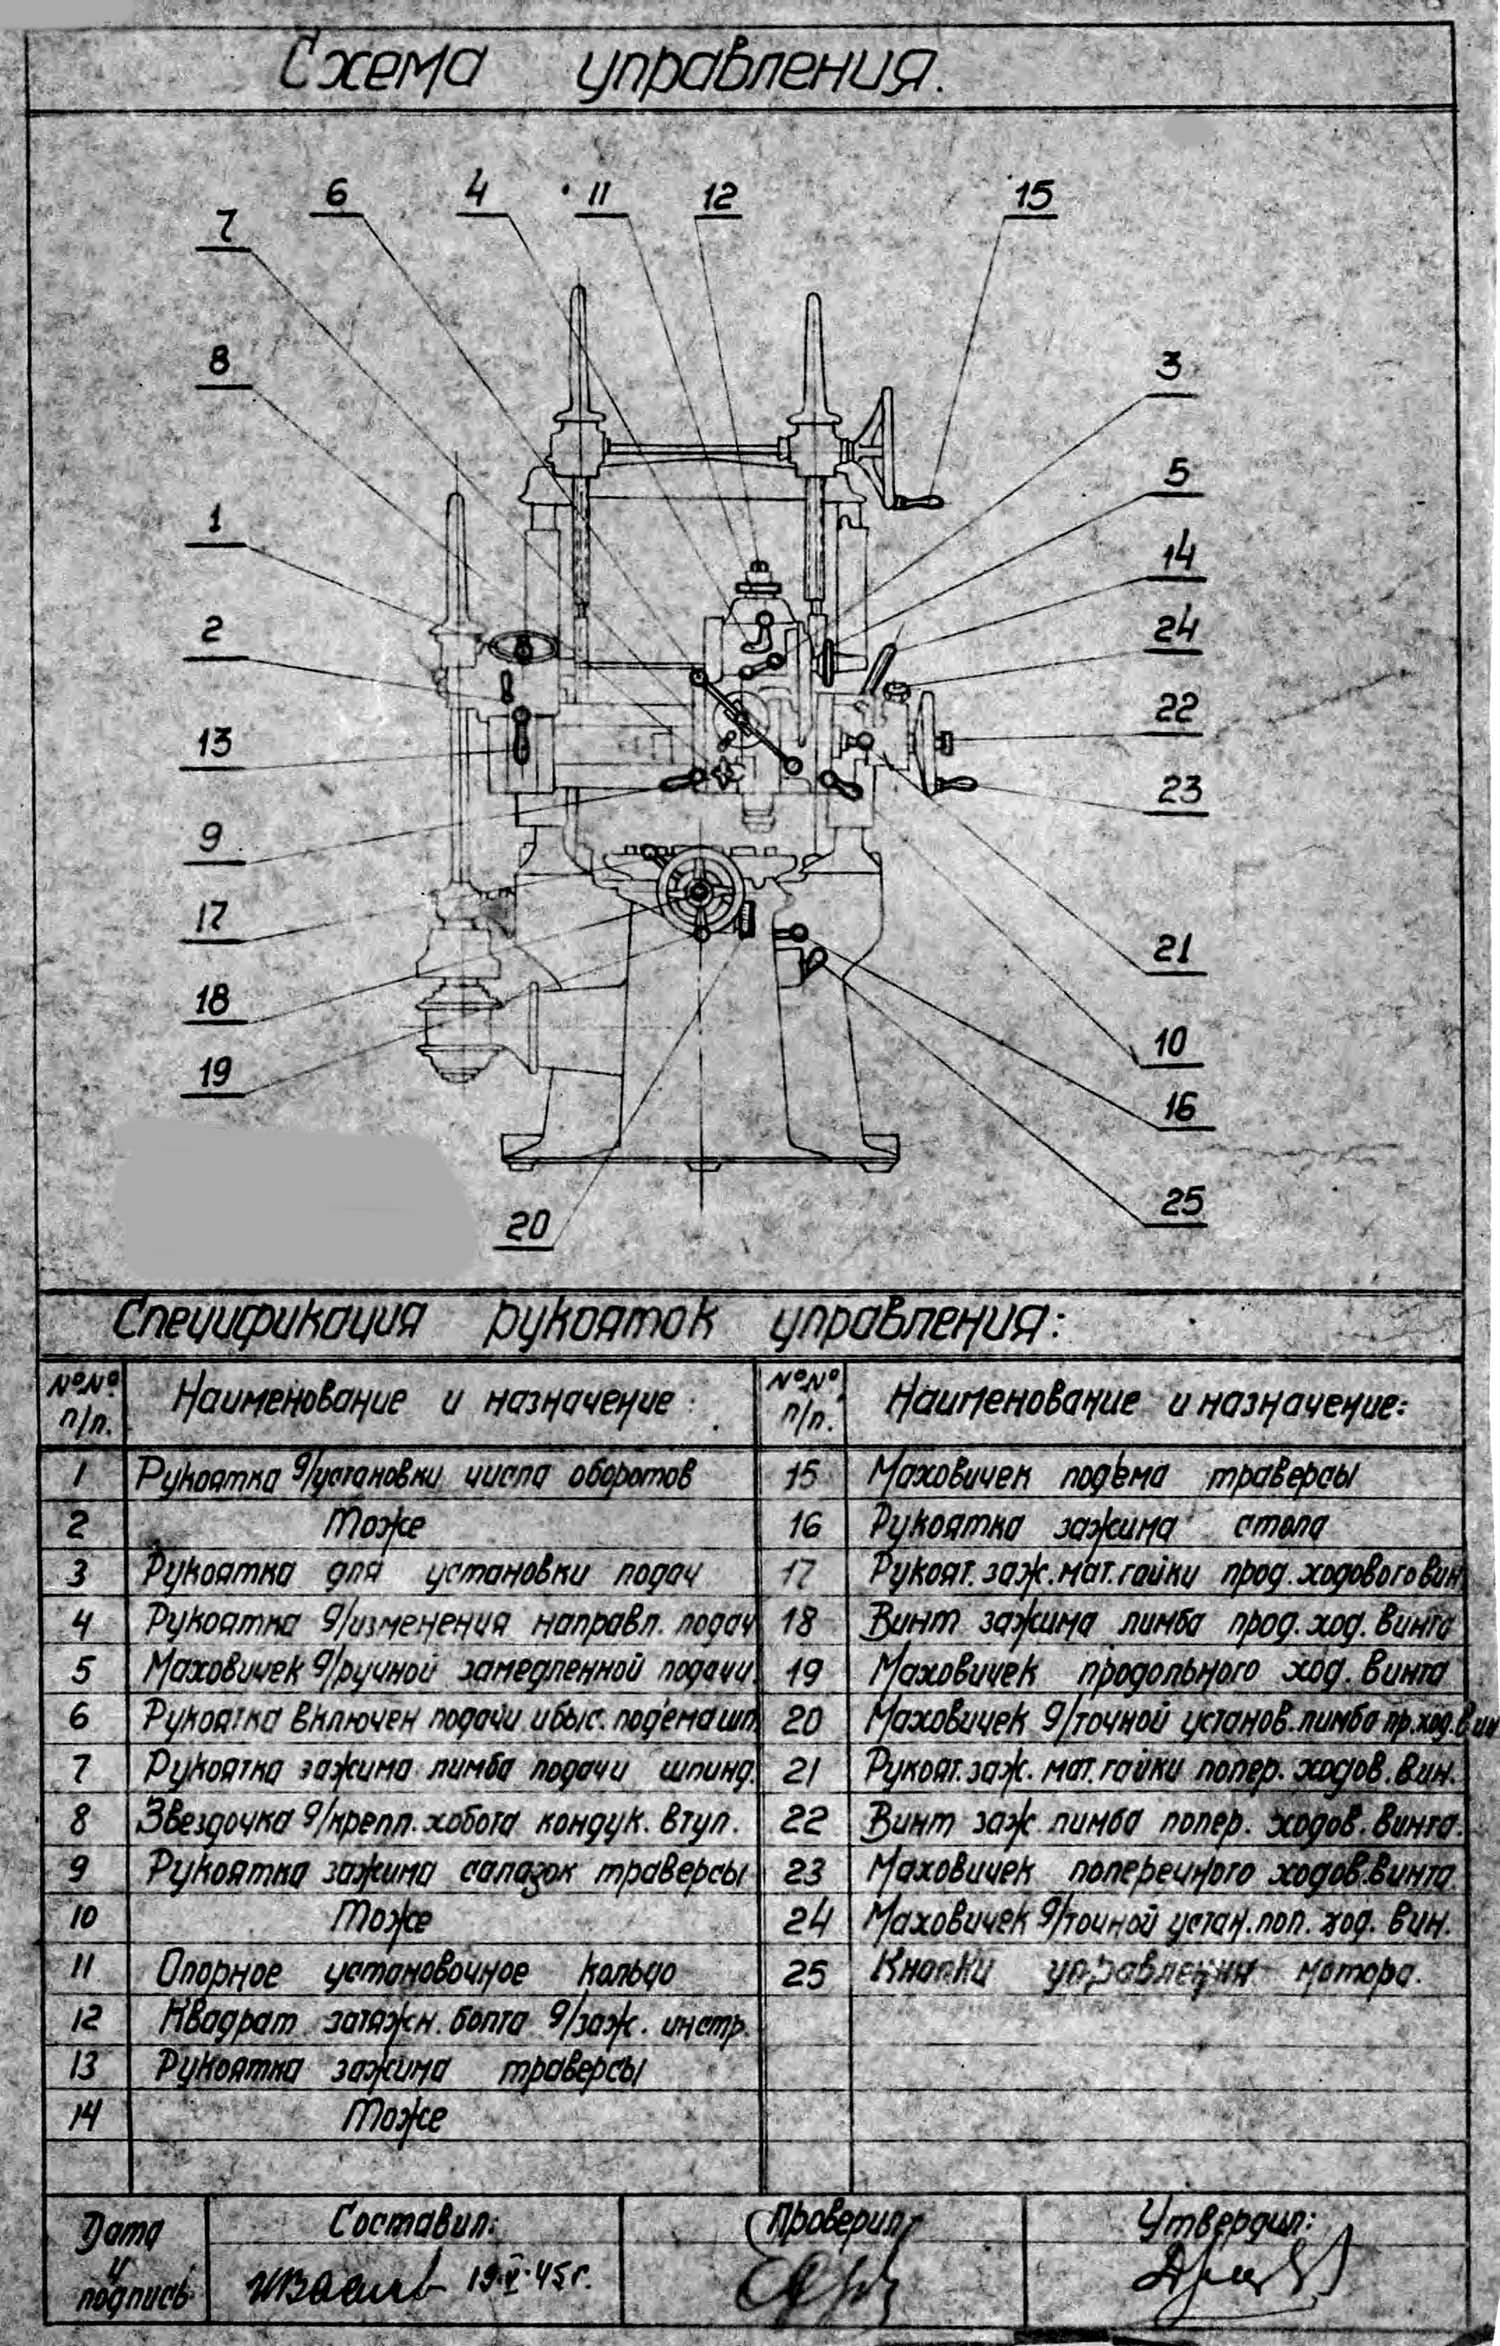 Схема управления.
6 4 11 12 15
7
8
3
5
1
14
2
24
13
22
23
9
17
21
18
10
19
16
25
20
Спецификация рукояток управления:
№№ п/п. Наименование и назначение: №№ п/п. Наименование и назначение:
1 Рукоятка д/установки числа оборотов 15 Маховичек подъема траверсы
2 Тоже 16 Рукоятка зажима стола
3 Рукоятка для установки подач 17 Рукоят. заж. мат. гайки прод. ходового вин
4 Рукоятка д/изменения направл. подач 18 Винт зажима лимба прод. ход. винта
5 Маховичек д/ручной замедленной подачи 19 Маховичек продольного ход. винта
6 Рукоятка включен подачи и быс. подъема шп. 20 Маховичек д/точной установ. лимба пр. ход. вин
7 Рукоятка зажима лимба подачи шпинд. 21 Рукоят. заж. мат. гайки попер. ходов. вин.
8 Звездочка д/крепл. хобота кондук. втул. 22 Винт заж лимба попер. ходов. винта.
9 Рукоятка зажима салазок траверсы 23 Маховичек поперечного ходов. винта.
10 Тоже 24 Маховичек д/точной устан. поп. ход. вин.
11 Опорное установочное кольцо 25 Кнопки управления мотора.
12 Квадрат затяжн. болта д/заж. инстр.
13 Рукоятка зажима траверсы
14 Тоже
Дата и подпись Составил: Проверил: Утвердил:
19.V.45г.